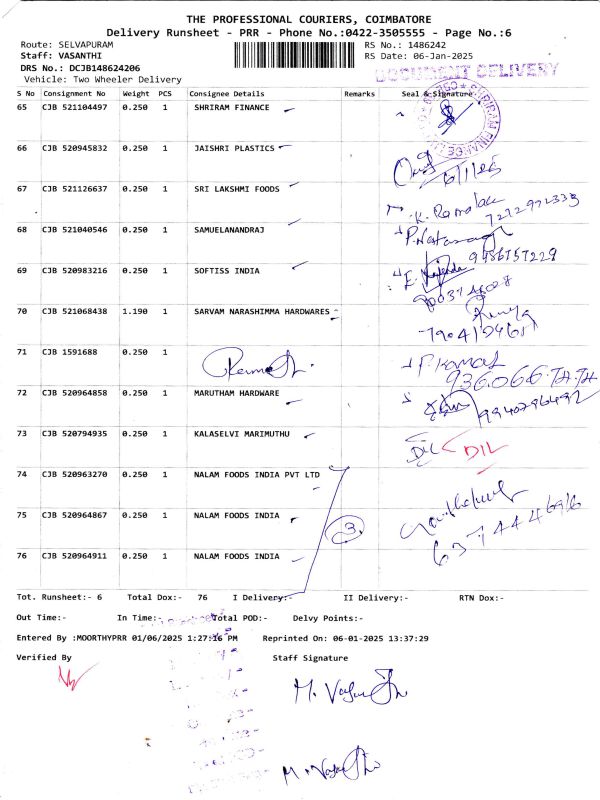 THE PROFESSIONAL COURIERS, COIMBATORE
Delivery Runsheet - PRR - Phone No.:0422-3505555 - Page No.:6
Route: SELVAPURAM RS No.: 1486242
Staff: VASANTHI RS Date: 06-Jan-2025
DRS No.: DCJB148624206
DOCUMENT DELIVERY
Vehicle: Two Wheeler Delivery
S No Consignment No Weight PCS Consignee Details Remarks Seal & Signature
65 CJB 521104497 0.250 1 SHRIRAM FINANCE
66 CJB 520945832 0.250 1 JAISHRI PLASTICS 6/1/25
67 CJB 521126637 0.250 1 SRI LAKSHMI FOODS K. Kamalak
68 CJB 521040546 0.250 1 SAMUELANANDRAJ P. Natarajan
69 CJB 520983216 0.250 1 SOFTISS INDIA
70 CJB 521068438 1.190 1 SARVAM NARASHIMMA HARDWARES
71 CJB 1591688 0.250 1 P. Kamal
72 CJB 520964858 0.250 1 MARUTHAM HARDWARE 9940796492
73 CJB 520794935 0.250 1 KALASELVI MARIMUTHU D/L D/L
74 CJB 520963270 0.250 1 NALAM FOODS INDIA PVT LTD
75 CJB 520964867 0.250 1 NALAM FOODS INDIA 3
76 CJB 520964911 0.250 1 NALAM FOODS INDIA 6374446916
Tot. Runsheet:- 6 Total Dox:- 76 I Delivery:- II Delivery:- RTN Dox:-
Out Time:- In Time:- Total POD:- Delvy Points:-
Entered By :MOORTHYPRR 01/06/2025 1:27:16 PM Reprinted On: 06-01-2025 13:37:29
Verified By Staff Signature
M. Vasanthi
M. Vasanthi